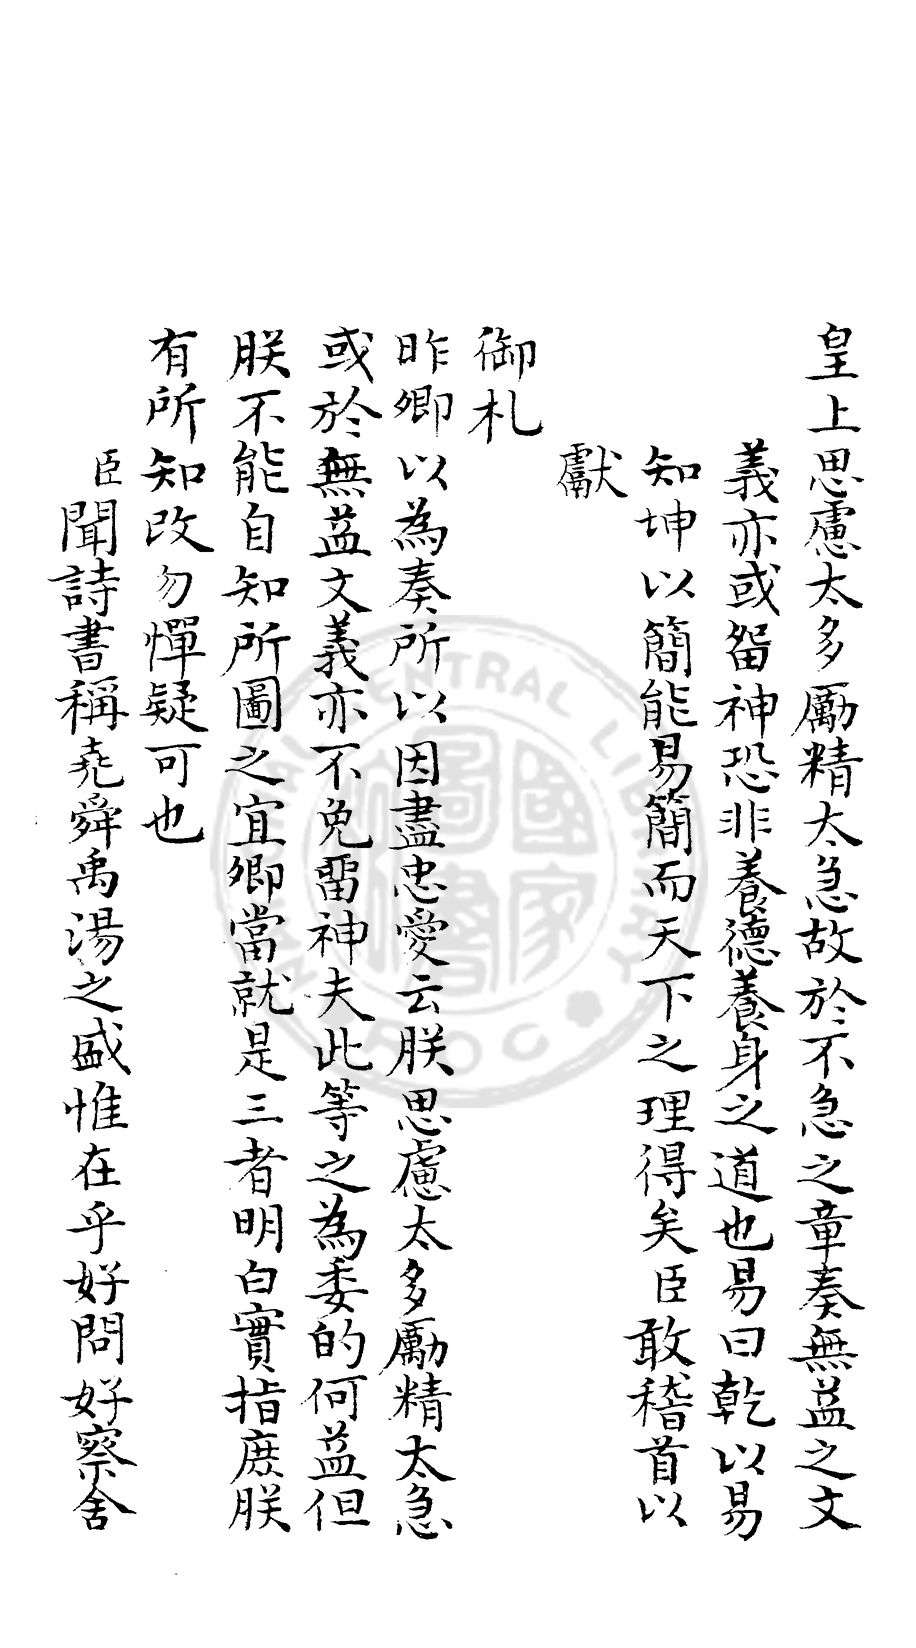 皇上思慮太多勵精太急故於不急之章奏無益之文
義亦或畱神恐非養德養身之道也易曰乾以易
知坤以簡能易簡而天下之理得矣臣敢稽首以
獻
御札
昨卿以為奏所以因盡忠愛云朕思慮太多勵精太急
或於無益文義亦不免畱神夫此等之為委的何益但
朕不能自知所圖之宜卿當就是三者明白實指庶朕
有所知改勿憚疑可也
臣聞詩書稱堯舜禹湯之盛惟在乎好問好察舍
NATIONAL CENTRAL LIBRARY R.O.C.
國家圖書館